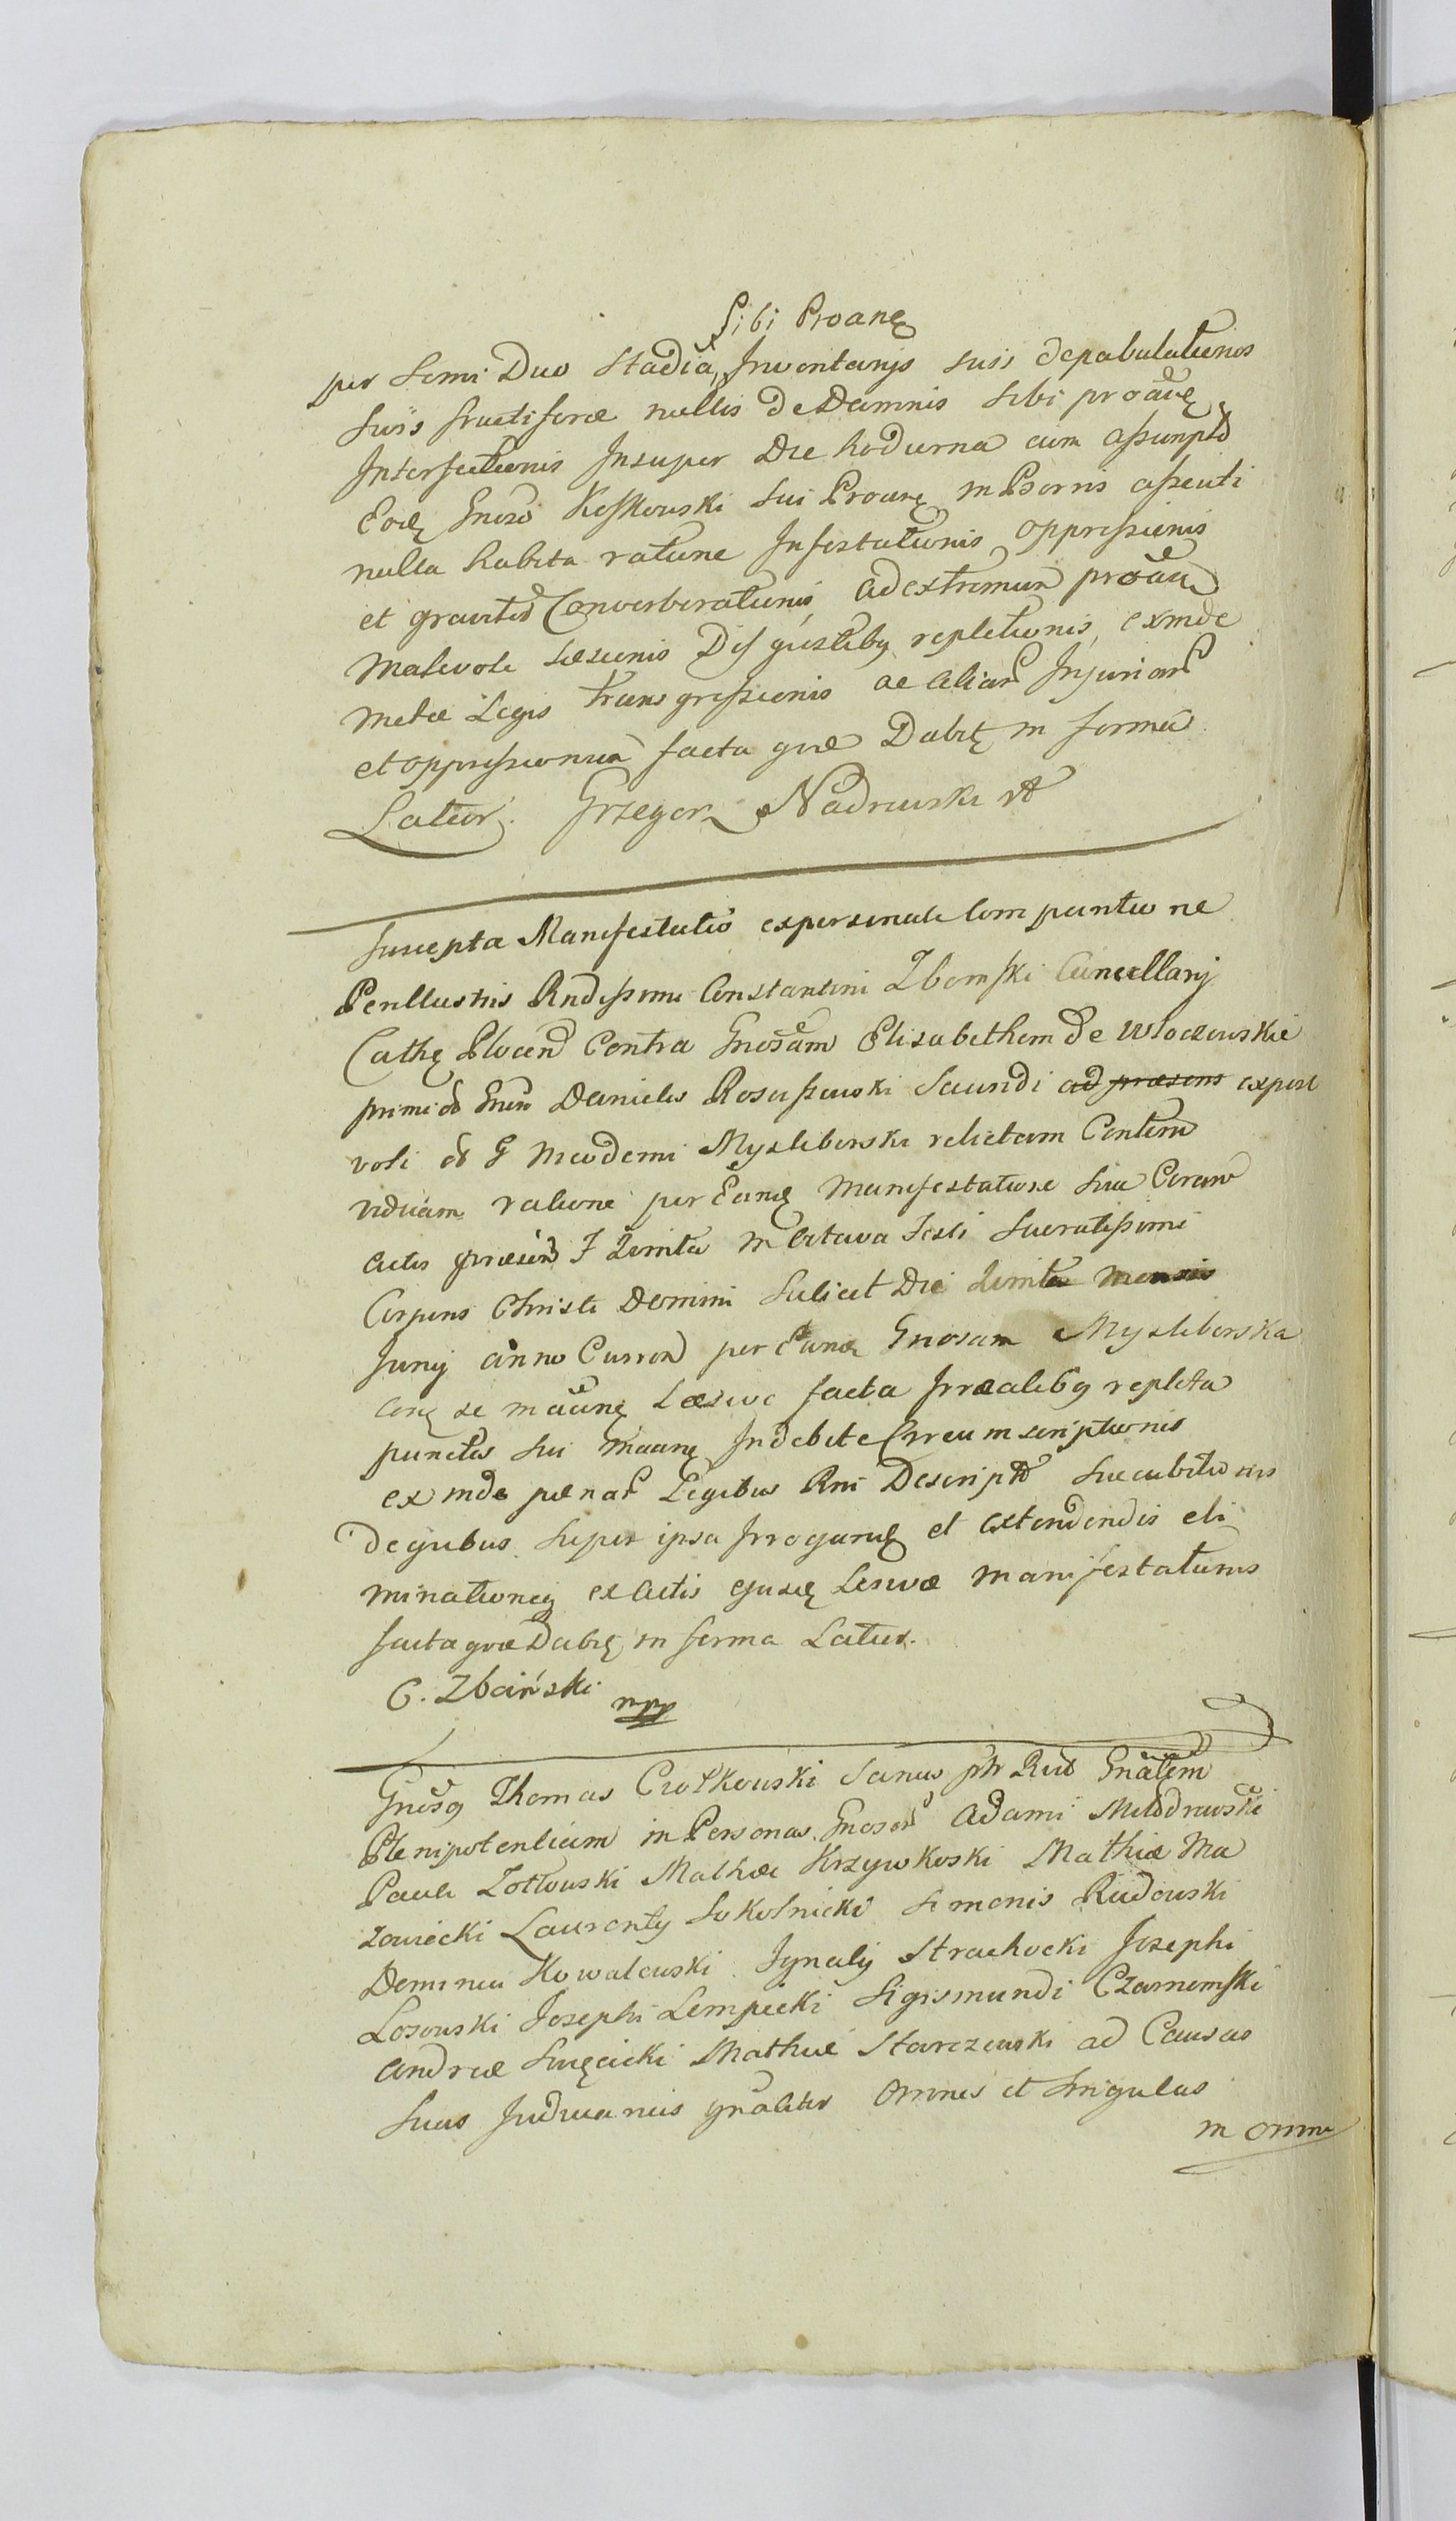 Sibi Proane
per Semi Duo Stadia, Inventarys suis depabulationes
suis fructiferæ nullis de Damnis sibi proane
Interfectionis Insuper Die hodierna cum assumpto
Eode Gnoso Keskowski sui Proane in Psornis assenti
nulla habita ratione Infestationis oppressionis
et graviter Converberationis, ad extremum proane
Malevole Læsionis Disgustibq repletionis, exinde
metæ Legis transgressionis ac aliar Injuriar
et oppressionum facta que Dabit in forma
Latior. Grzegorz Nadrowski

Suscepta Manifestatio ex personali Comparitione
Perillustris Rndissimi Constantini Zboinski Cancellary
Cathe Plocen Contra Gnosam Elisabetham de Wloczewskie
primi od Gnoso Danielis Rosciszewski Secundi ad præsens expost
voti od G Nicodemi Mysliborski relictam Conten
viduam ratione per Eande Manifestationis sua Coram
Actis præsen F Zemsta in Octava Festi Sacratissimi
Corporis Christi Domini Scilicet Die Mensis
Juny anno Curren per Eande Gnosam Mysliborska
Conse se in aane Læsive facta Irrealibq repleta
punctis sui Maane Indebite Circumscriptionis
exinde pænar Legibus Rni Descript succubitionis
De quibus super ipsa Irrogandis et Extendendis eli
minationeq ex Actis ejusde Lesivæ manifestationis
facta que Dabit in forma Latior.
C. Zboiński mpp

Gnosq Thomas Ciołkowski Sanus ptr Rus Gnalem
Plenipotentiam in Personas Gnosor Adami Młodzowski
Pauli Zołtowski Mathæ Krzywkoski Mathiæ Ma
zowiecki Laurenty Sokolnicki Simonis Rudowski
Dominici Kowalewski Ignaty Strachocki Josephi
Losowski Josephi Lempicki Sigismundi Czarnomski
Andreæ Święcicki Mathiæ Starczewski ad Causas
suas Judiciarias gnaliter Omnes et Singulas
in omni